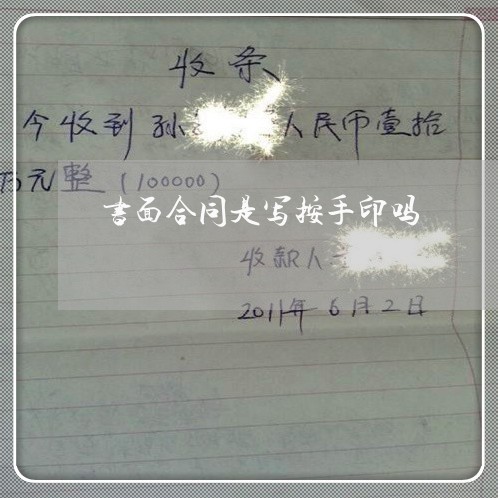 收条
今收到孙 人民币壹拾
万元整（100000）
书面合同是写按手印吗
收款人
2011年6月2日